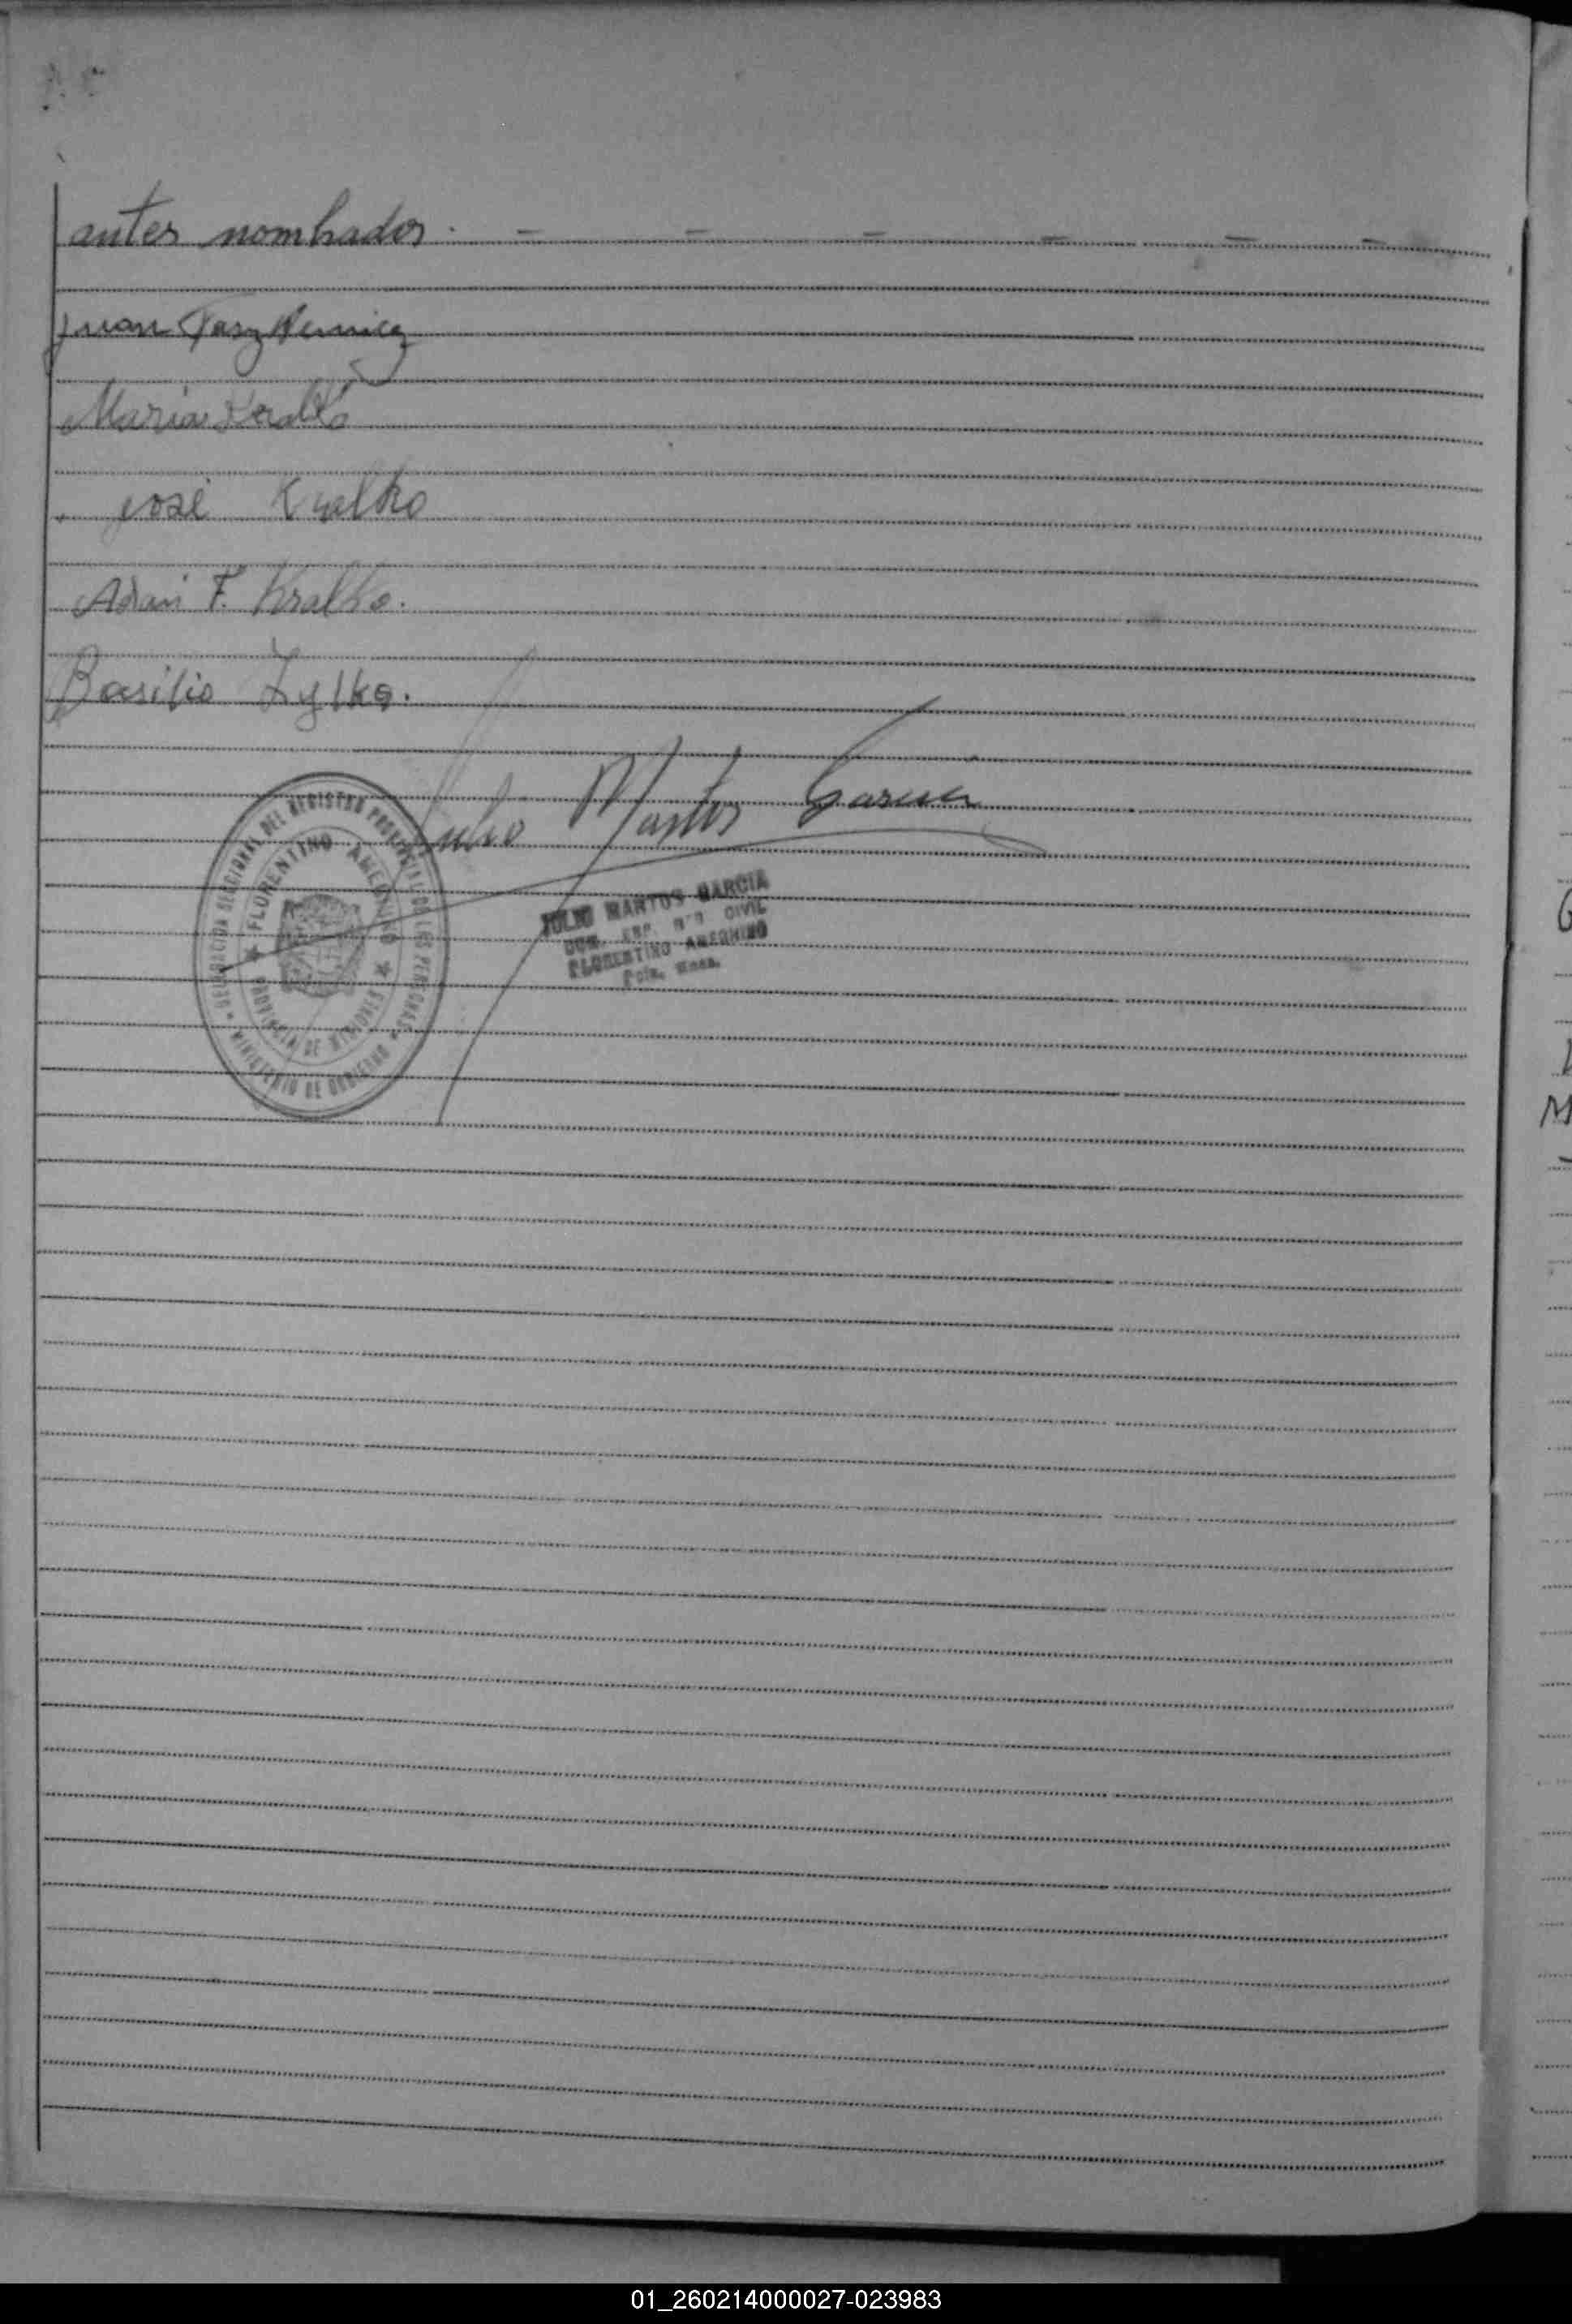 antes nombrados.
Juan Taszkunicz
Maria Kralko
José Kralko
Adan F. Kralko.
Basilio Zylko.
Julio Martos Garcia
JULIO MARTOS GARCIA
CIVIL
FLORENTINO AMEGHINO
DELEGACION SECCIONAL DEL REGISTRO PROVINCIAL DE LAS PERSONAS
★ FLORENTINO AMEGHINO ★
PROVINCIA DE MISIONES
MINISTERIO DE GOBIERNO
01_260214000027-023983